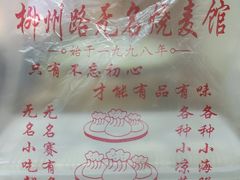 柳州路无名烧麦馆
始于一九九八年
只有不忘初心
才能有品有味
无名小吃
无名赛有名
各种小凉
各种小海